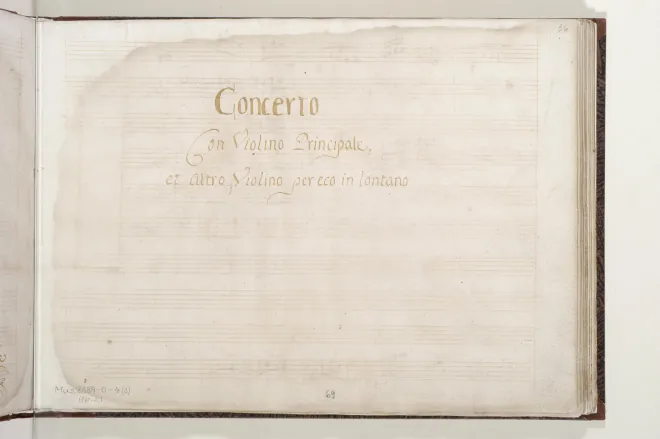 26
Concerto
Con Violino Principale,
et altro Violino per eco in lontano
69